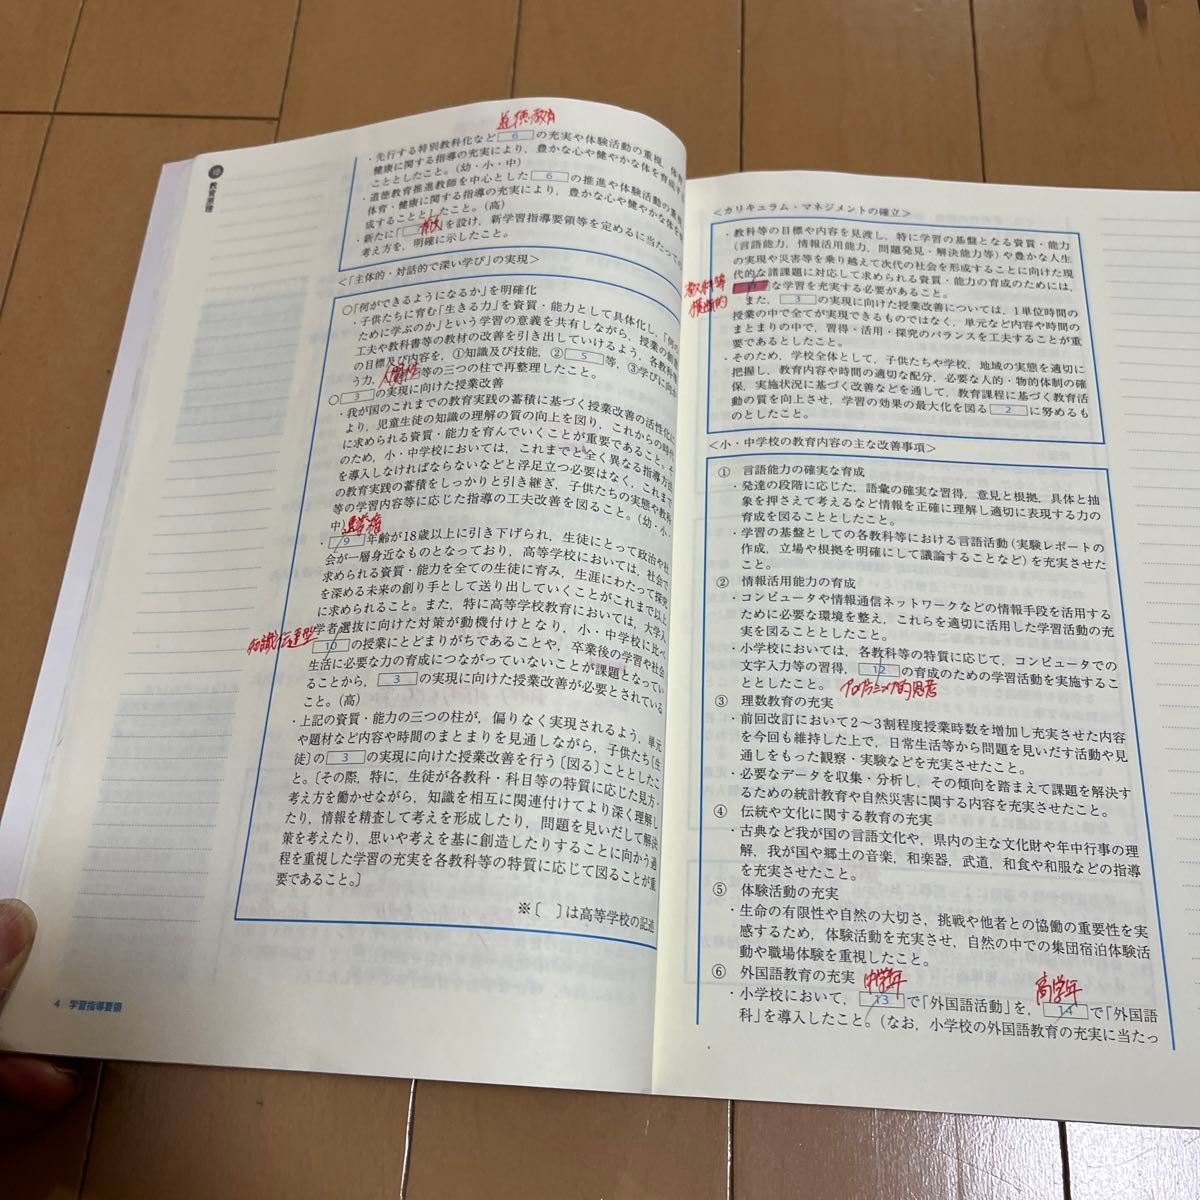 教育原理
道徳教育
・先行する特別教科化など 6 の充実や体験活動の重視，体育・
健康に関する指導の充実により，豊かな心や健やかな体を育成する
こととしたこと。(幼・小・中)
・道徳教育推進教師を中心とした 6 の推進や体験活動の重視，
体育・健康に関する指導の充実により，豊かな心や健やかな体を育
成することとしたこと。(高)
・新たに「前文」を設け，新学習指導要領等を定めるに当たっての
考え方を，明確に示したこと。
＜「主体的・対話的で深い学び」の実現＞
○「何ができるようになるか」を明確化
・子供たちに育む「生きる力」を資質・能力として具体化し，「何の
ために学ぶのか」という学習の意義を共有しながら，授業の創意
工夫や教科書等の教材の改善を引き出していけるよう，各教科等
の目標及び内容を，①知識及び技能，② 5 等，③学びに向か
う力，人間性等の三つの柱で再整理したこと。
○ 3 の実現に向けた授業改善
・我が国のこれまでの教育実践の蓄積に基づく授業改善の活性化に
より，児童生徒の知識の理解の質の向上を図り，これからの時代
に求められる資質・能力を育んでいくことが重要であること。そ
のため，小・中学校においては，これまでと全く異なる指導方法
を導入しなければならないなどと浮足立つ必要はなく，これまで
の教育実践の蓄積をしっかりと引き継ぎ，子供たちの実態や教科
等の学習内容等に応じた指導の工夫改善を図ること。(幼・小・
中)
選挙権
・ 9 年齢が18歳以上に引き下げられ，生徒にとって政治や社
会が一層身近なものとなっており，高等学校においては，社会で
求められる資質・能力を全ての生徒に育み，生涯にわたって探究
を深める未来の創り手として送り出していくことがこれまで以上
に求められること。また，特に高等学校教育においては，大学入
学者選抜に向けた対策が動機付けとなり，小・中学校に比べ
知識伝達型
10 の授業にとどまりがちであることや，卒業後の学習や社会
生活に必要な力の育成につながっていないことが課題となってい
ることから， 3 の実現に向けた授業改善が必要とされている
こと。(高)
・上記の資質・能力の三つの柱が，偏りなく実現されるよう，単元
や題材など内容や時間のまとまりを見通しながら，子供たち〔生
徒〕の 3 の実現に向けた授業改善を行う〔図る〕こととしたこ
と。〔その際，特に，生徒が各教科・科目等の特質に応じた見方・
考え方を働かせながら，知識を相互に関連付けてより深く理解し
たり，情報を精査して考えを形成したり，問題を見いだして解決
策を考えたり，思いや考えを基に創造したりすることに向かう過
程を重視した学習の充実を各教科等の特質に応じて図ることが重
要であること。〕
※〔　〕は高等学校の記述
4 学習指導要領
＜カリキュラム・マネジメントの確立＞
・教科等の目標や内容を見渡し，特に学習の基盤となる資質・能力
(言語能力，情報活用能力，問題発見・解決能力等)や豊かな人生
の実現や災害等を乗り越えて次代の社会を形成することに向けた現
代的な諸課題に対応して求められる資質・能力の育成のためには，
教科等
横断的
11 な学習を充実する必要があること。
また， 3 の実現に向けた授業改善については，1単位時間の
授業の中で全てが実現できるものではなく，単元など内容や時間の
まとまりの中で，習得・活用・探究のバランスを工夫することが重
要であるとしたこと。
・そのため，学校全体として，子供たちや学校，地域の実態を適切に
把握し，教育内容や時間の適切な配分，必要な人的・物的体制の確
保，実施状況に基づく改善などを通して，教育課程に基づく教育活
動の質を向上させ，学習の効果の最大化を図る 2 に努めるも
のとしたこと。
＜小・中学校の教育内容の主な改善事項＞
① 言語能力の確実な育成
・発達の段階に応じた，語彙の確実な習得，意見と根拠，具体と抽
象を押さえて考えるなど情報を正確に理解し適切に表現する力の
育成を図ることとしたこと。
・学習の基盤としての各教科等における言語活動(実験レポートの
作成，立場や根拠を明確にして議論することなど)を充実させた
こと。
② 情報活用能力の育成
・コンピュータや情報通信ネットワークなどの情報手段を活用する
ために必要な環境を整え，これらを適切に活用した学習活動の充
実を図ることとしたこと。
・小学校においては，各教科等の特質に応じて，コンピュータでの
文字入力等の習得， 12 の育成のための学習活動を実施するこ
ととしたこと。
プログラミング的思考
③ 理数教育の充実
・前回改訂において2～3割程度授業時数を増加し充実させた内容
を今回も維持した上で，日常生活等から問題を見いだす活動や見
通しをもった観察・実験などを充実させたこと。
・必要なデータを収集・分析し，その傾向を踏まえて課題を解決す
るための統計教育や自然災害に関する内容を充実させたこと。
④ 伝統や文化に関する教育の充実
・古典など我が国の言語文化や，県内の主な文化財や年中行事の理
解，我が国や郷土の音楽，和楽器，武道，和食や和服などの指導
を充実させたこと。
⑤ 体験活動の充実
・生命の有限性や自然の大切さ，挑戦や他者との協働の重要性を実
感するため，体験活動を充実させ，自然の中での集団宿泊体験活
動や職場体験を重視したこと。
⑥ 外国語教育の充実
中学年
高学年
・小学校において， 13 で「外国語活動」を， 14 で「外国語
科」を導入したこと。(なお，小学校の外国語教育の充実に当たっ